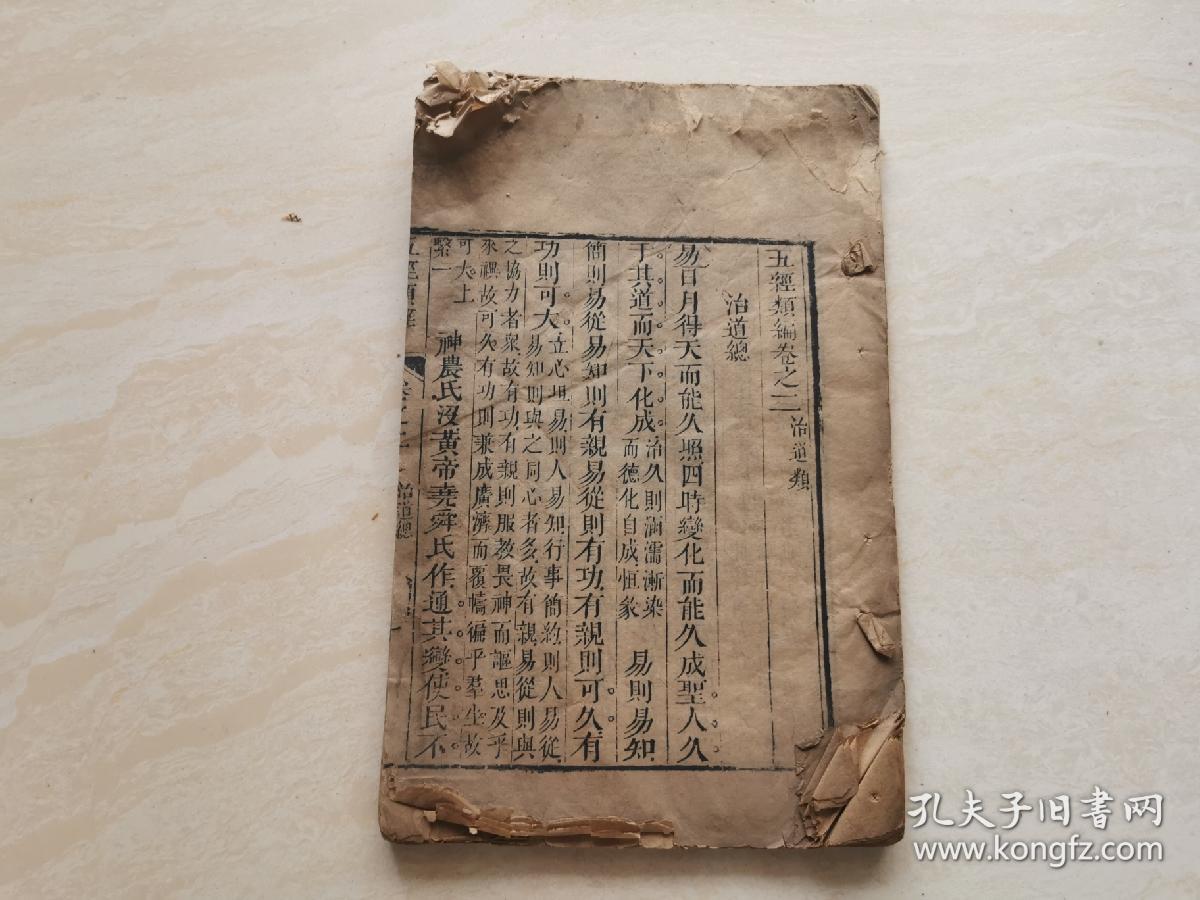 五經類編卷之二 治道類
治道總
易日月得天而能久照四時變化而能久成聖人久
于其道而天下化成治久則涵濡漸染而德化自成恒彖 易則易知
簡則易從易知則有親易從則有功有親則可久有
功則可大立心坦易則人易知行事簡約則人易從
易知則與之同心者多故有親易從則與
之協力者衆故有功有親則服教畏神而謳思及乎
來禩故可久有功則兼成廣濟而覆幬徧乎羣生故
可大上
繫一 神農氏沒黃帝堯舜氏作通其變使民不
五經類 治道總
孔夫子旧書网
www.kongfz.com